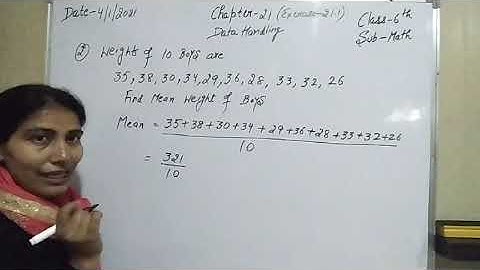 Date-4/1/2021
Chapter-21 (Exercise-21.1)
Data Handling
Class-6th
Sub-Math
② Weight of 10 Boys are
35, 38, 30, 34, 29, 36, 28, 33, 32, 26
Find Mean Weight of Boys
Mean = 35+38+30+34+29+36+28+33+32+26
10
= 321
10